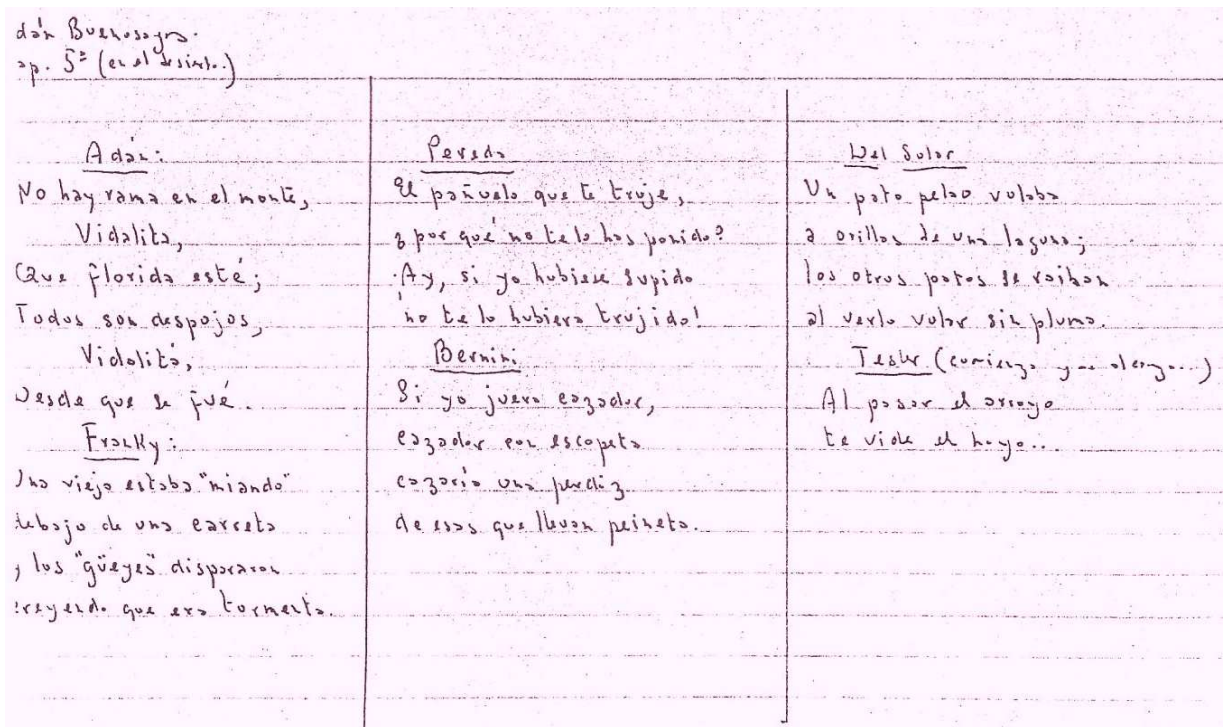 dán Buenosayres.
ap. 5º (en el desierto.)
Adán:
No hay rama en el monte,
Vidalita,
Que florida esté;
Todos son despojos,
Vidalitá,
Desde que se fué.
Franky:
Una vieja estaba "miando"
debajo de una carreta
y los "güeyes" dispararon
creyendo que era tormenta.
Pereda
El pañuelo que te truje,
¿por qué no te lo has ponido?
¡Ay, si yo hubiese supido
no te lo hubiera trujido!
Bernini
Si yo juera cazador,
cazador con escopeta
cazaría una perdiz
de esas que llevan peineta.
Del Solar
Un pato pelao volaba
a orillas de una laguna;
los otros patos se raiban
al verlo volar sin pluma.
Tesler (comienza y no alcanza...)
Al pasar el arroyo
te vide el hoyo...